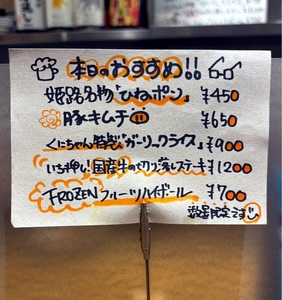 本日のおすすめ!!
姫路名物「ひねポン」 ¥450
豚キムチ ¥650
くにちゃん特製「ガーリックライス」 ¥900
いち押し!国産牛の切り落しステーキ ¥1200
FROZENフルーツハイボール ¥700
数量限定です